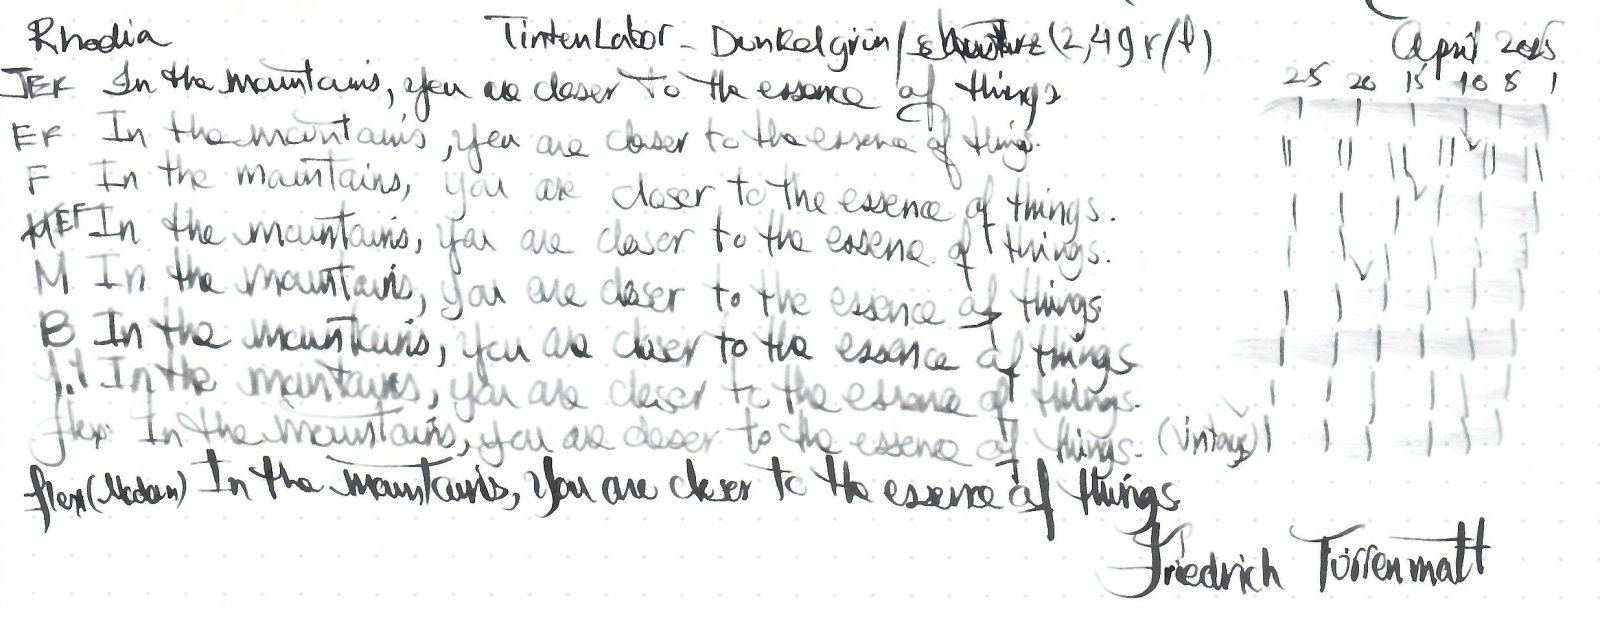 Rhodia TintenLabor - Dunkelgrün/schwarz (2,4gr/l) April 2025
JEF In the mountains, you are closer to the essence of things 25 20 15 10 5 1
EF In the mountains, you are closer to the essence of things.
F In the mountains, you are closer to the essence of things.
MEF In the mountains, you are closer to the essene of things.
M In the mountains, you are closer to the essence of things
B In the mountains, you are closer to the essence of things
1.1 In the mountains, you are closer to the essence of things.
flex: In the mountains, you are closer to the essence of things. (vintage)
flex (Modern) In the mountains, you are closer to the essence of things
Friedrich Türrenmatt